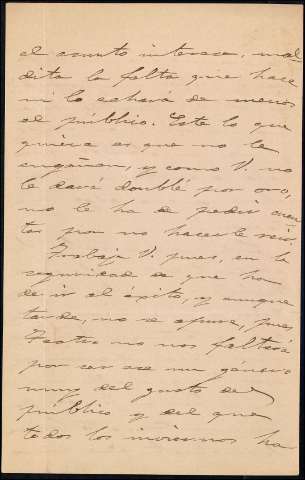 el asunto interesa, mal
dita la falta que hace
ni lo echará de menos
el público. Este lo que
quiere es que no le
engañen, y como V. no
le dará doublé por oro,
no le ha de pedir cuen
tas por no hacerle reir.
Trabaje V. pues, en la
seguridad de que ha
de ir al éxito, y aunque
tarde, no se apure, pues
Teatro no nos faltará
por ser ese un género
muy del gusto del
público y del que
todos los inviernos ha